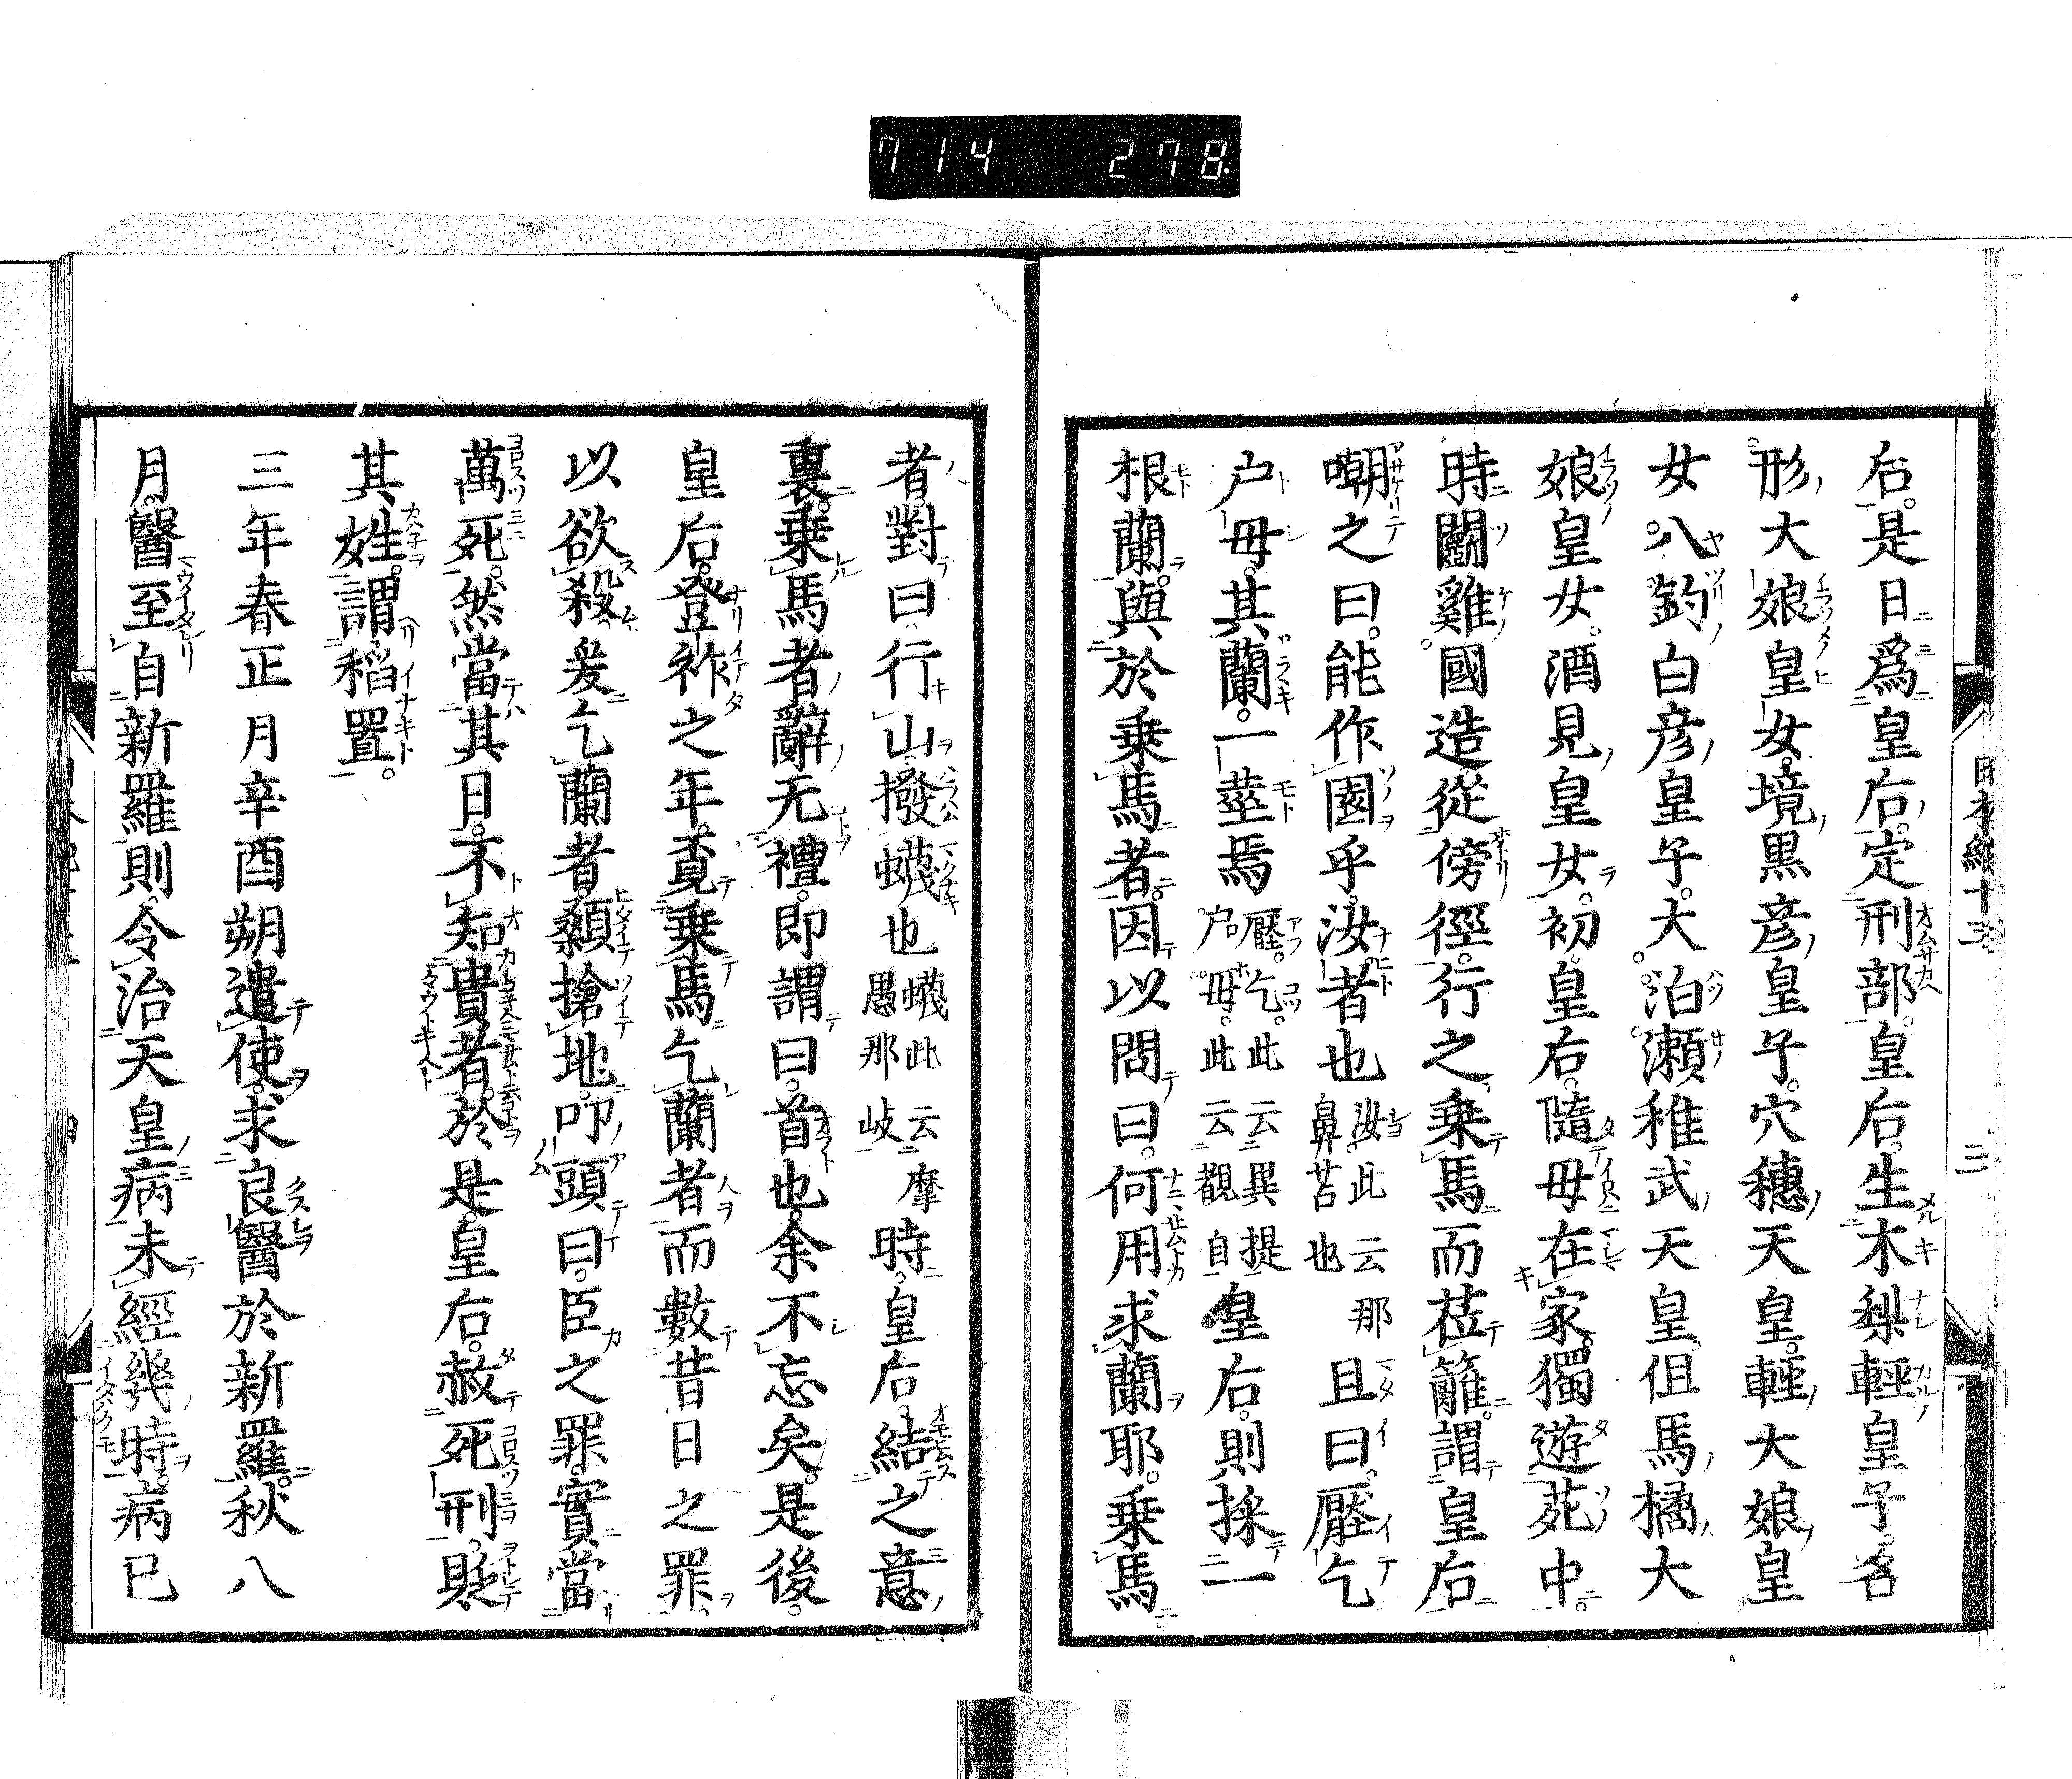 714 278
日本紀十三 三
后是日爲皇后定刑部皇后生木梨輕皇子名
形大娘皇女境黒彦皇子穴穗天皇輕大娘皇
女八釣白彦皇子大泊瀬稚武天皇但馬橘大
娘皇女酒見皇女初皇后隨母在家獨遊苑中
時鬪雞國造從傍徑行之乗馬而莅籬謂皇后
嘲之曰能作園乎汝者也汝此云那鼻苔也且曰壓乞
戸母其蘭一莖焉壓乞此云異提戸母此云覩自皇后則採一
根蘭與於乗馬者因以問曰何用求蘭耶乗馬
者對曰行山撥蠛也蠛此云摩愚那岐時皇后結之意
裏乗馬者辭无禮即謂曰首也余不忘矣是後
皇后登祚之年覓乗馬乞蘭者而數昔日之罪
以欲殺爰乞蘭者顙搶地叩頭曰臣之罪實當
萬死然當其日不知貴者於是皇后赦死刑貶
其姓謂稻置
三年春正月辛酉朔遣使求良醫於新羅秋八
月醫至自新羅則令治天皇病未經幾時病已